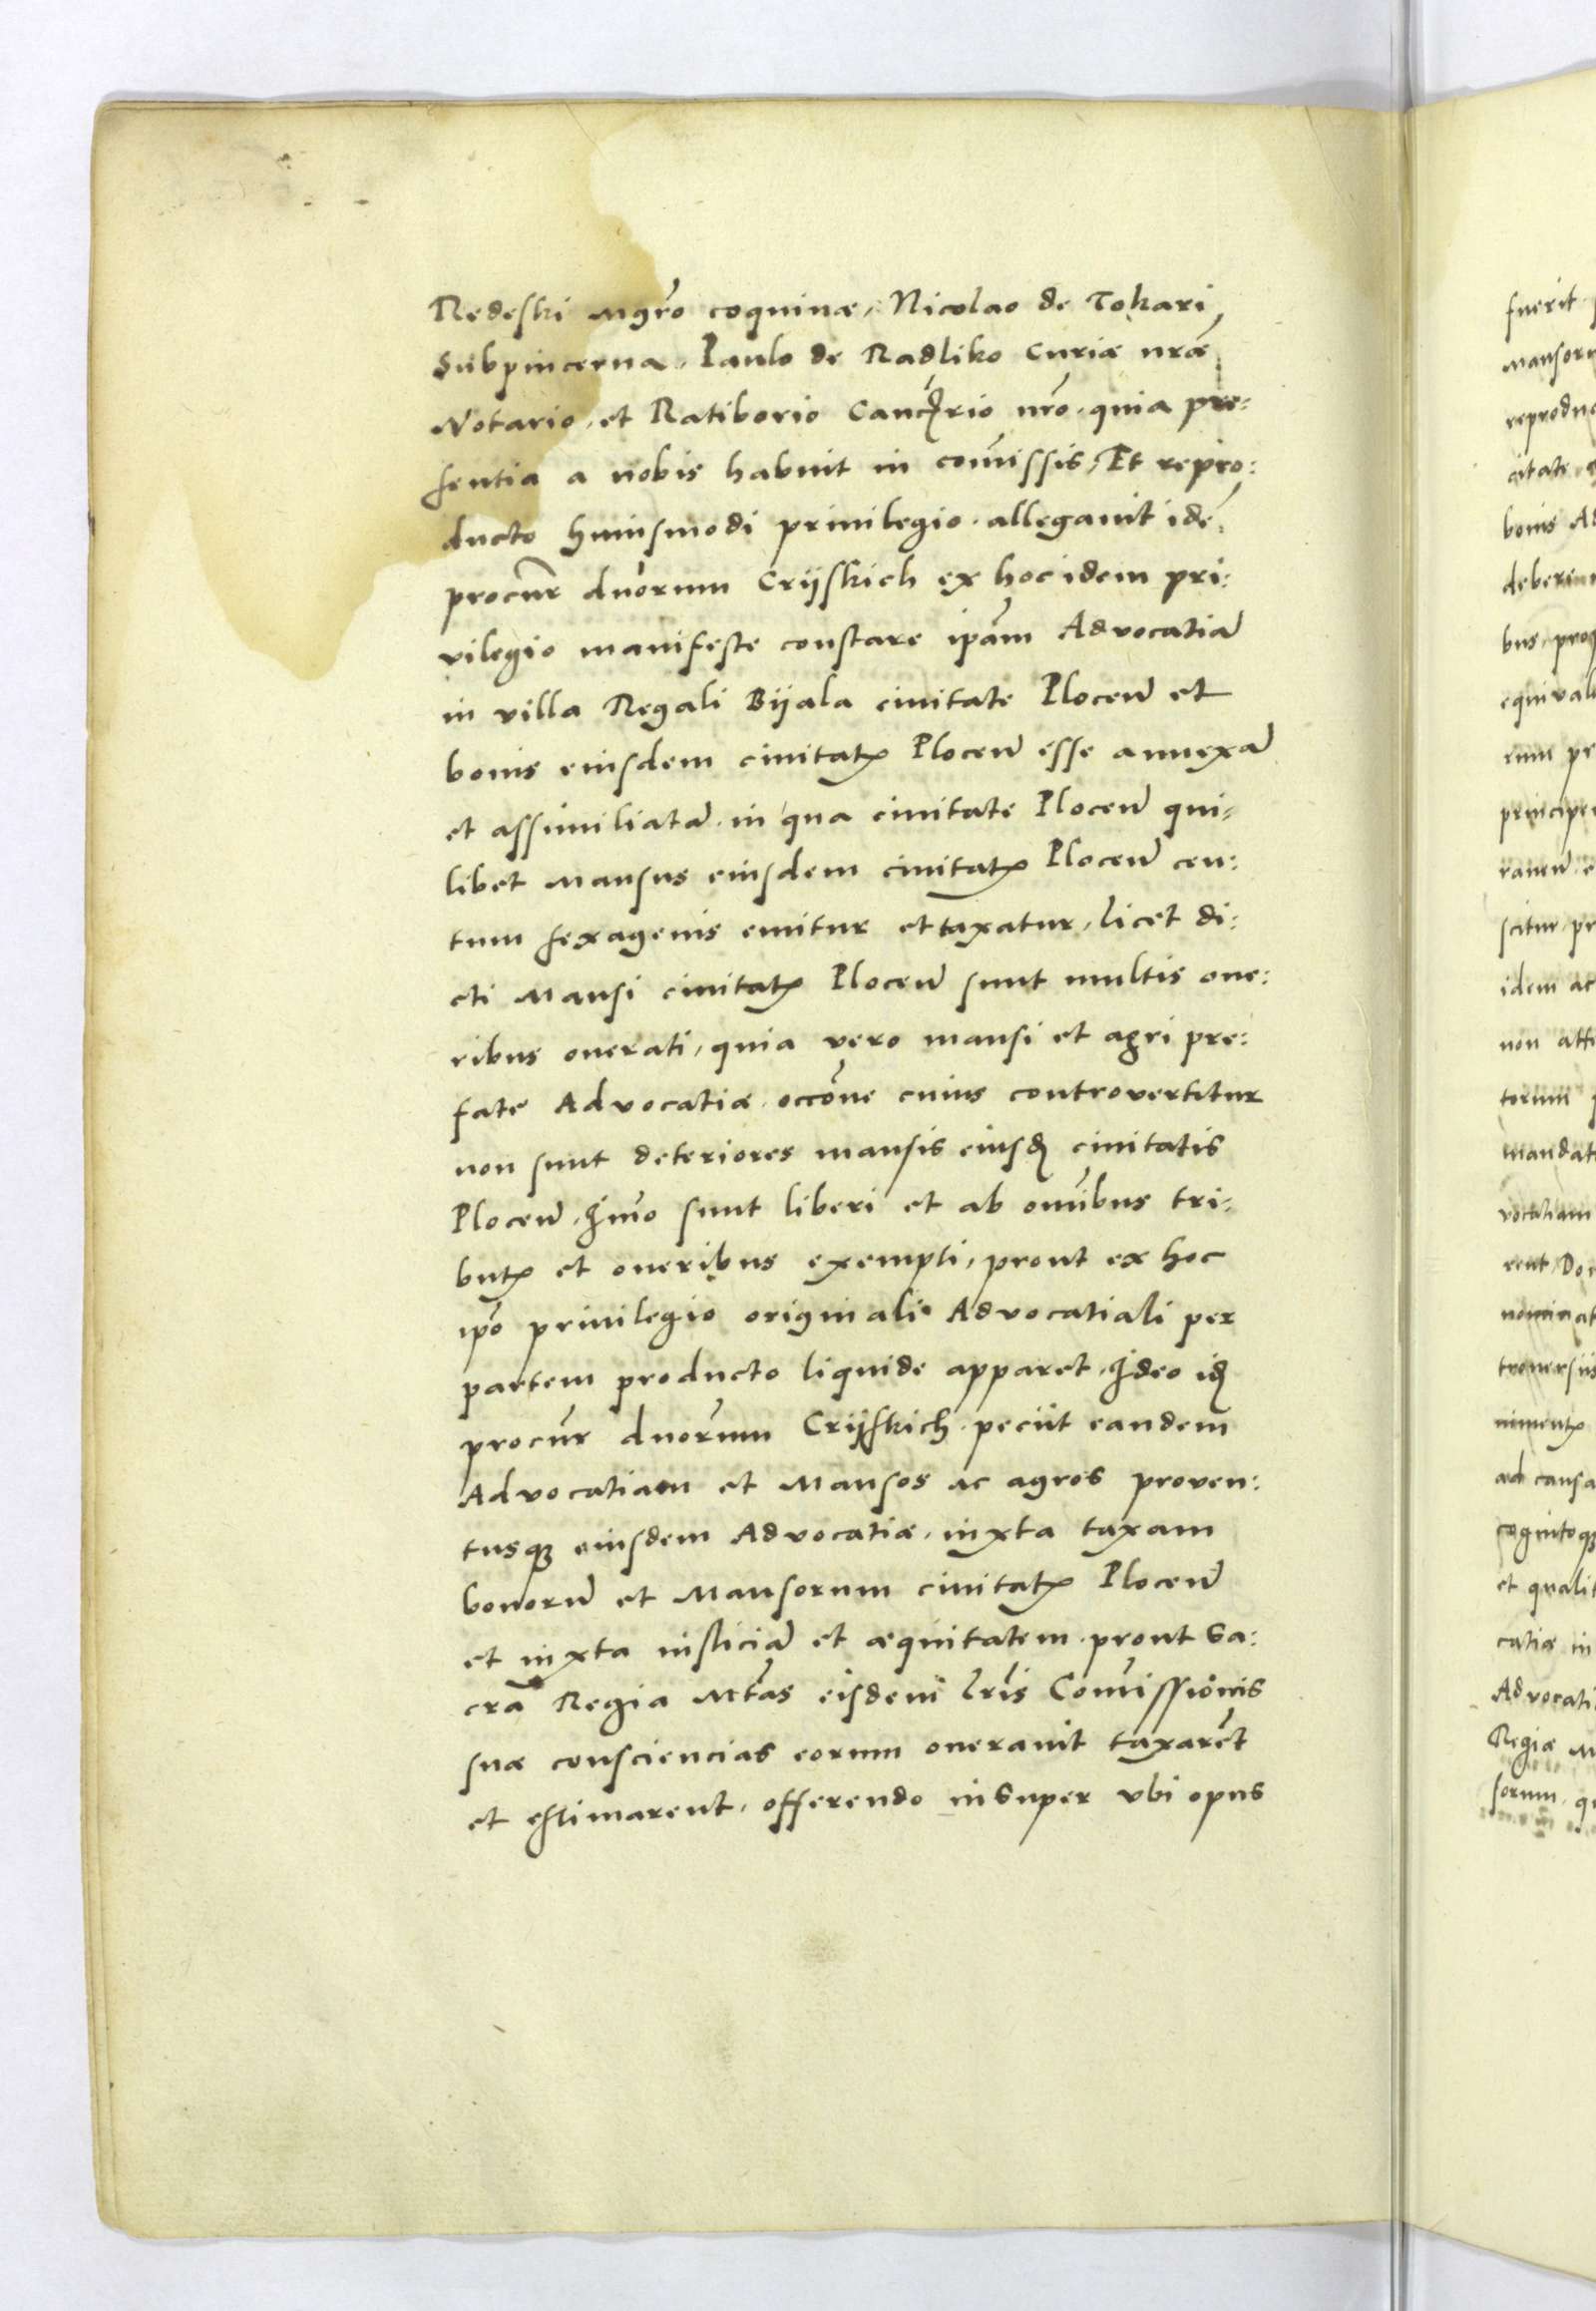 Redeski mgr̃o coquinæ, Nicolao de Tokari,
Subpincerna, Paulo de Radliko Curiæ nr̃æ
Notario, et Ratiborio Canc̃rio nr̃o, quia pre:
sentia a nobis habuit in com̃issis, Et repro:
ducto huiusmodi priuilegio. allegauit idẽ
procur̃ duorum Crijskich ex hoc idem pri:
vilegio manifeste constare ip̃am Advocatiã
in villa Regali Bijala ciuitate Plocen̄ et
bonis eiusdem ciuitatꝭ Plocen̄ esse annexã
et assimiliatã. in qua ciuitate Plocen̄ qui=
libet Mansus eiusdem ciuitatꝭ Plocen̄ cen:
tum sexagenis emitur et taxatur, licet di:
cti Mansi ciuitatꝭ Plocen̄ sunt multis one:
ribus onerati, quia vero mansi et agri pre:
fate Advocatiæ. occõne cuius controvertitur
non sunt deteriores mansis eiusđ ciuitatis
Plocen̄, Im̃o sunt liberi et ab om̃ibus tri:
butꝭ et oneribus exempti, prout ex hoc
ip̃o priuilegio originali Advocatiali per
partem producto liquide apparet, Ideo iđ
procur̃ duorum Crijskich. peciit eandem
Advocatiam et Mansos ac agros proven:
tusqꝫ eiusdem Advocatiæ, iuxta taxam
bonorũ et Mansorum ciuitatꝭ Plocen̄
et iuxta iusticiã et æquitatem. prout Sa:
cra Regia Mt̃as eisdem lr̃is Com̃issionis
suæ consciencias eorum onerauit taxarẽt
et estimarent, offerendo insuper vbi opus
fuerit
reprodu
bonis
equival
rum pe
idem ac
non atti
mandat
vocatiam
nominat
troversiis
ad causa
et qualit
catiæ in
Advocati
Regiæ M
sorum, qu